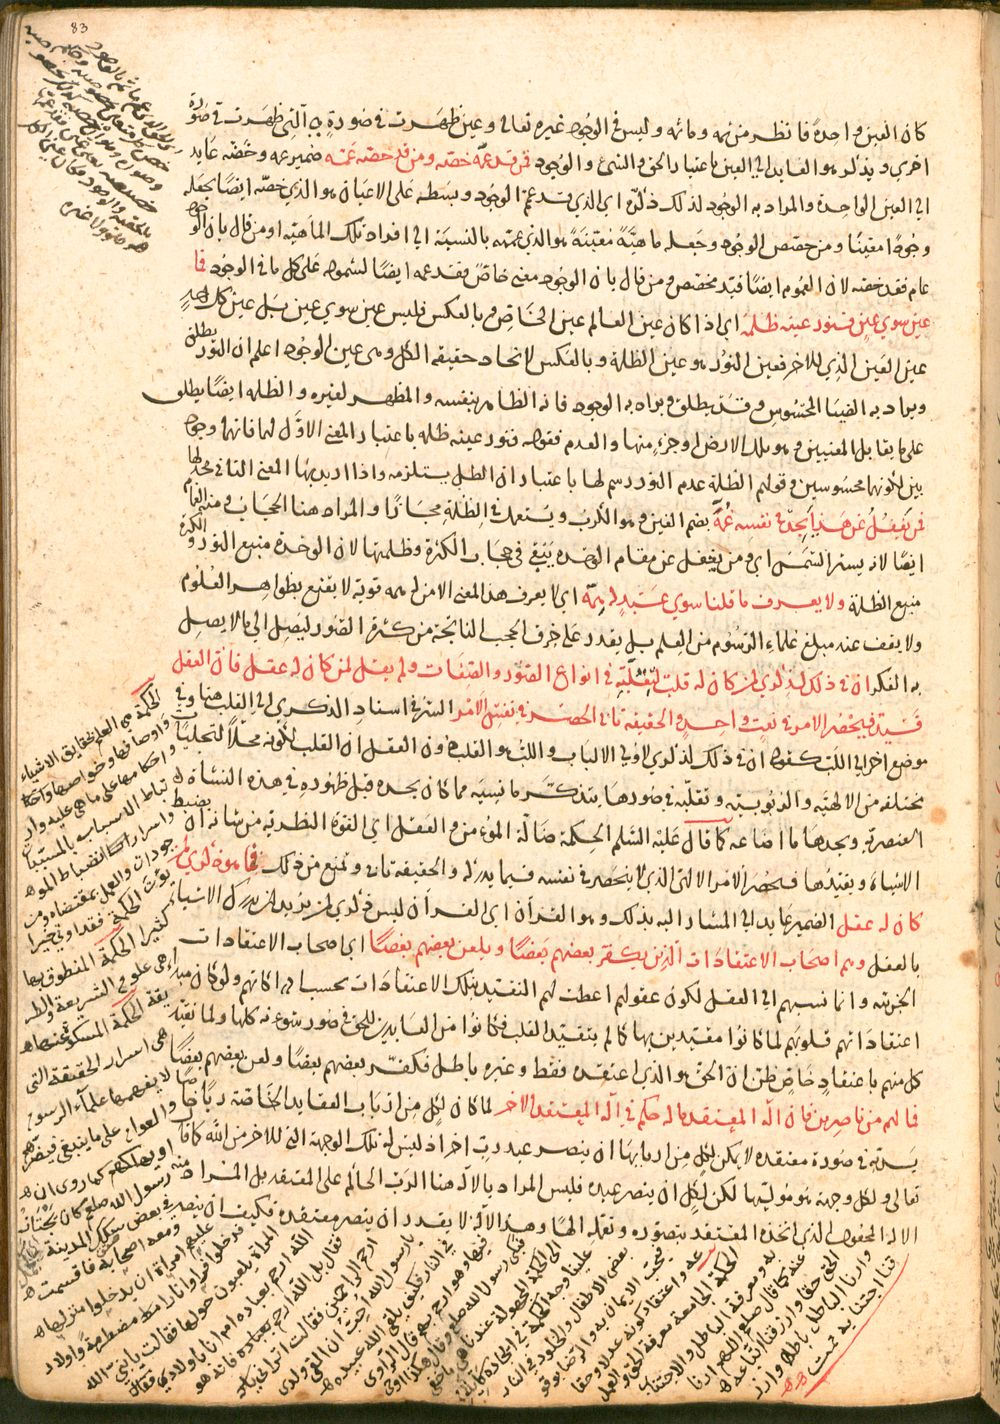 83
كان العين واحدة فانظر من ثمه وما ثمه وليس في الوجود غيره تعالى وعين ظهرت في صورة هي التي ظهرت في صورة
اخرى ويذكر هو العايد الى العين باعتبار الحق والشئ او الوجود فمن قد عمه خصه ومن قد خصه عمه ضمير عمه وخصه عايد
الى العين الواحدة والمراد به الوجود لذلك ذكره اي الذي قد عم الوجود وبسطه على الاعيان هو الذي خصه ايضا بجعله
وجودا معينا ومن خصص الوجود وجعله ماهية معينة هو الذي عمه بالنسبة الى افراد تلك الماهية او من قال بان الوجود
عام فقد خصه لان العموم ايضا قيد مخصص ومن قال بان الوجود معنى خاص فقد عمه ايضا لشموله على كل ما في الوجود فما
عين سوى عين فنور عينه ظلمه اي اذا كان عين العالم عين الخاص وبالعكس فليس عين سوى عين بل عين كل احد
عين العين الذي للاخر فعين النور هو عين الظلمة وبالعكس لاتحاد حقيقة الكل وهي عين الوجود اعلم ان النور يطلق
ويراد به الضيا المحسوس وقد يطلق ويراد به الوجود فانه الظاهر بنفسه والمظهر لغيره والظلمة ايضا يطلق
على ما يقابل المعنيين وهو ظل الارض او جزء منها والعدم فقوله فنور عينه ظلمه باعتبار المعنى الاول لهما فانهما وجود
يين لكونهما محسوسين وقولهم الظلمة عدم النور رسم لها باعتبار ان الظل يستلزمه واذا اريد بها المعنى الثاني محلها
فمن يغفل عن هذا يجد في نفسه غمه بضم الغين وهو الكرب ويستعمل في الظلمة مجازا والمراد هنا الحجاب ومنه الغمام
ايضا لانه يستر الشمس اي ومن يغفل عن مقام الوحدة يبقى في حجاب الكثرة وظلمتها لان الوحدة منبع النور والكثرة
منبع الظلمة ولا يعرف ما قلنا سوى عبد له همه اي لا يعرف هذا المعنى الا من له همه قوية لا يقنع بظواهر العلوم
ولا يقف عند مبلغ علماء الرسوم من العلم بل يقدر على خرق الحجب الناتجة من كثرة الصور ليصل الى ما لا يصل
به الفكر ان في ذلك لذكرى لمن كان له قلب لتقلبه في انواع الصور والصفات ولم يقل لمن كان له عقل فان العقل
قيد فيحصر الامر في نعت واحد والحقيقة تابى الحصر في نفس الامر السر في اسناد الذكرى الى القلب هنا وفي
موضع اخر الى اللب كقوله ان في ذلك لذكرى لاولي الالباب واللب هو القلب دون العقل ان القلب لكونه محلا لتجليات
مختلفه من الالهية والربوبية وتقلبه في صورها يتذكر ما نسيه مما كان يجده قبل ظهوره في هذه النشاة
العنصرية ويجد ما اضاعه كما قال عليه السلم الحكمة ضالة المؤمن والعقل اي القوة النظرية من شانه ان
الاشياء ويقيدها فيحصر الامر الالهي الذي لا ينحصر في نفسه فيما يدركه والحقيقة تابى وتمنع من ذلك فما هو ذكرى لمن
كان له عقل الضمير عايد الى المشار اليه بذلك وهو القرآن اي القرآن ليس ذكرى لمن يريد ان يدرك الاشياء
بالعقل وهم اصحاب الاعتقادات الذين يكفر بعضهم بعضا ويلعن بعضهم بعضا اي اصحاب الاعتقادات
الجزئية وانما نسبهم الى العقل لكون عقولهم اعطت لهم التقييد بتلك الاعتقادات بحسب ادراكاتهم ولو كان مبدا
اعتقاداتهم قلوبهم لما كانوا مقيدين بها كما لم يتقيد القلب وكانوا من العابدين للحق في صور تنوعه كلها ولما تقيد
كل منهم باعتقاد خاص ظن ان الحق هو الذي اعتقده فقط وغيره باطل فكفر بعضهم بعضا ولعن بعضهم بعضا
فما لهم من ناصرين فان اله المعتقد ما له حكم في اله المعتقد الاخر لما كان لكل من ارباب العقايد الخاصة ربا خاصا
يربه في صورة معتقده لا يمكن لكل من اربابها ان ينصر عبد رب اخر اذ ليس له تلك الوجهة التي للاخر من الله كما قال
تعالى ولكل وجهة هو موليها لكن لكل ان ينصر عبده فليس المراد بالاله هنا الرب الحاكم على المعتقد بل المراد منه
الاله المجعول الذي اتخذه المعتقد بتصوره وتعقله الها وهذا الاله لا يقدر ان ينصر معتقده فكيف ان ينصر
الحكمة هي العلم بحقايق الاشياء
واوصافها وخواصها واحكا
واحكامها على ما هي عليه وار
تباط الاسباب بالمسببات
واسرار انضباط المو
جودات والعمل بمقتضاه ومن
يؤت الحكمة فقد اوتي خيرا
كثيرا الحكمة المنطوق بها
هي علوم الشريعة والطر
يقة الحكمة المسكوت عنها
هي اسرار الحقيقة التي
لا يفهمها علماء الرسوم
والعوام على ما ينبغي فيضرهم
او يهلكهم كما روى ان
رسول الله صلعم كان يجتاز
في بعض سكك المدينة
ومعه اصحابه فاقسمت
عليهم امراة ان يدخلوا منزلها
فدخلوا فراوا نارا مضطرمة واولاد
المراة يلعبون حولها فقالت يا نبي الله
الله ارحم بعباده ام انا باولادي فقال
فقال بل الله ارحم بعباده فانه هو
ارحم الراحمين فقالت
يا رسول الله اتراني احب ان القي ولدي
في النار فكيف يلقي الله عبيده
فيها وهو ارحم بهم قال الراوي
فبكى رسول الله صلعم وقال هكذا اوحي
الى الحكمة المجهولة عندنا هي ما خفي
علينا وجه الحكمة في ايجاده كايلام
بعض الاطفال والخلود في النار
فيجب الايمان به والرضا بوقو
عه واعتقاد كونه عدلا وحقا
الحكمة الجامعة معرفة الحق والعمل
به ومعرفة الباطل والاجتناب
عنه كما قال صلعم اللهم ارنا
الحق حقا وارزقنا اتباعه
وارنا الباطل باطلا وارز
قنا اجتنابه تمت